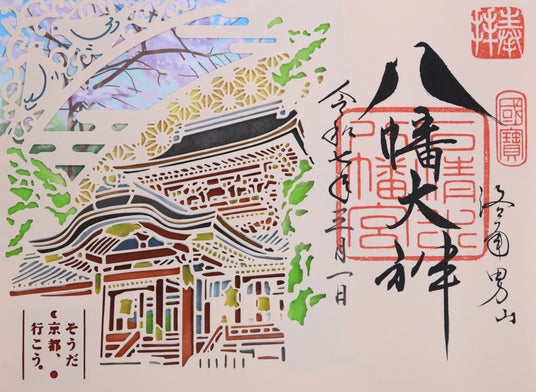 奉拝
國寶
洛南男山
八幡大神
石清水
八幡宮
令和七年三月一日
そうだ
京都、
行こう。